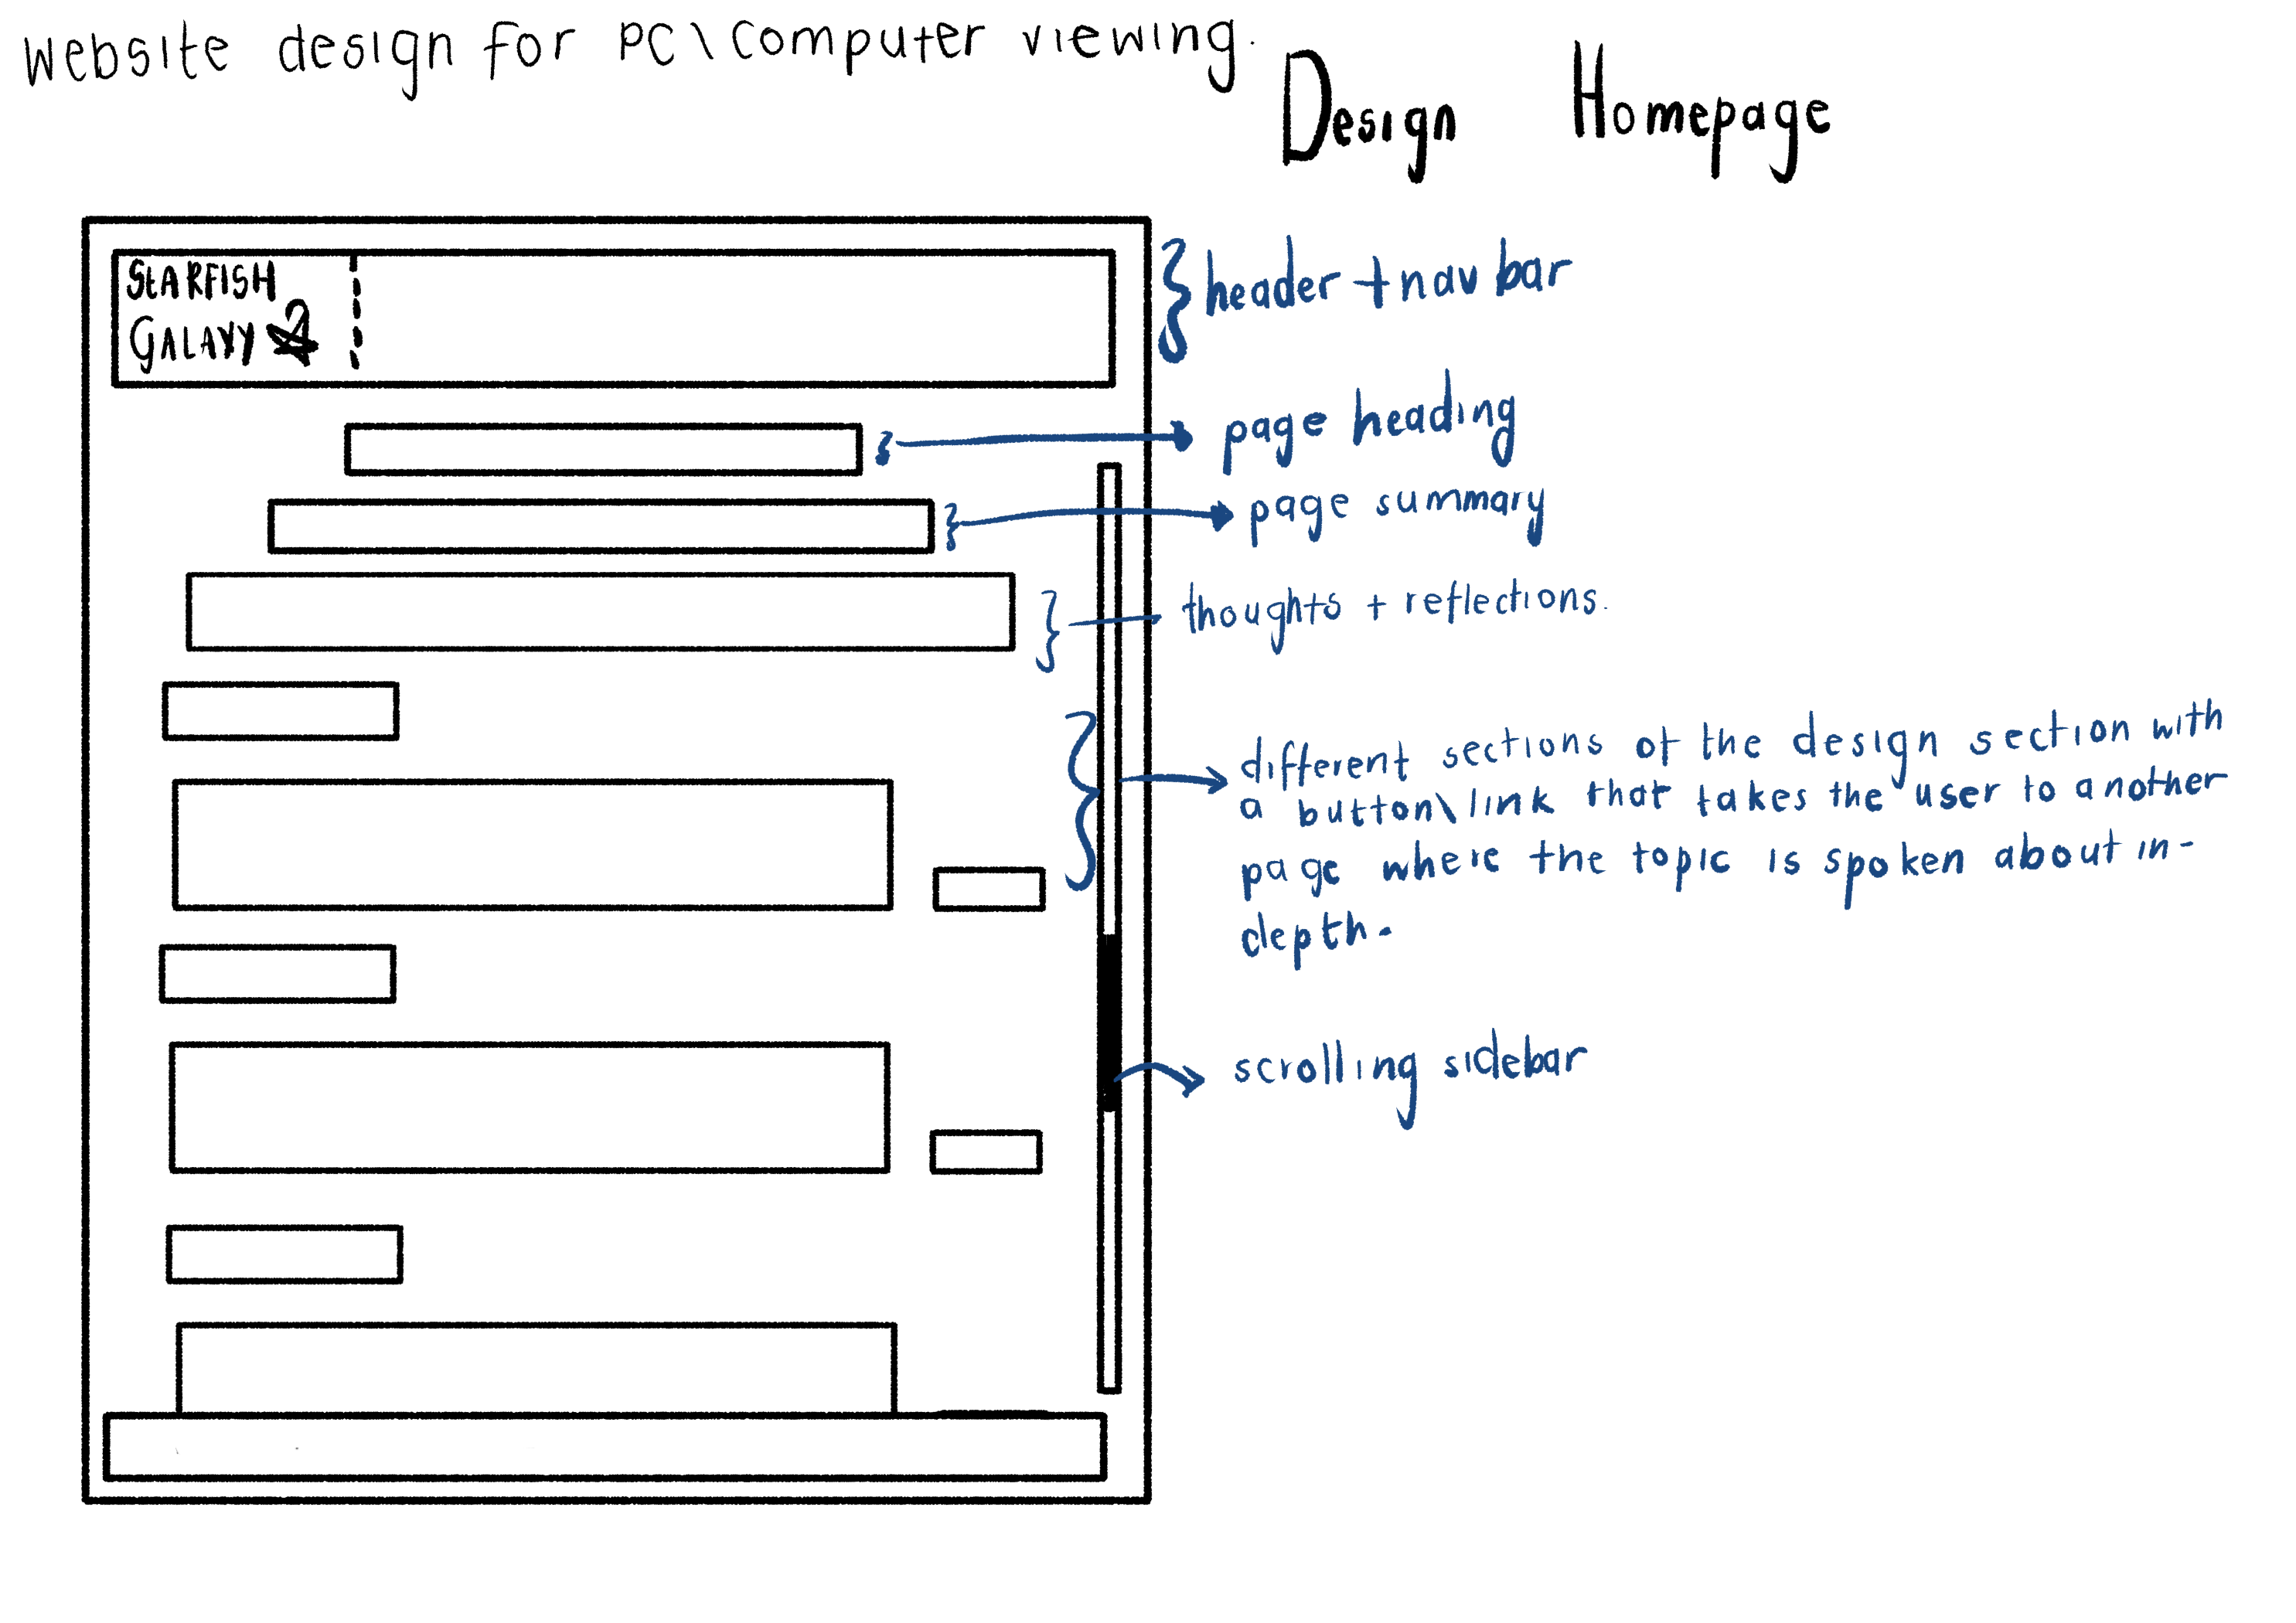 website design for PC\computer viewing.
Design Homepage
STARFISH
GALAXY
header + nav bar
page heading
page summary
thoughts + reflections.
different sections of the design section with
a button\link that takes the user to another
page where the topic is spoken about in-
depth.
scrolling sidebar